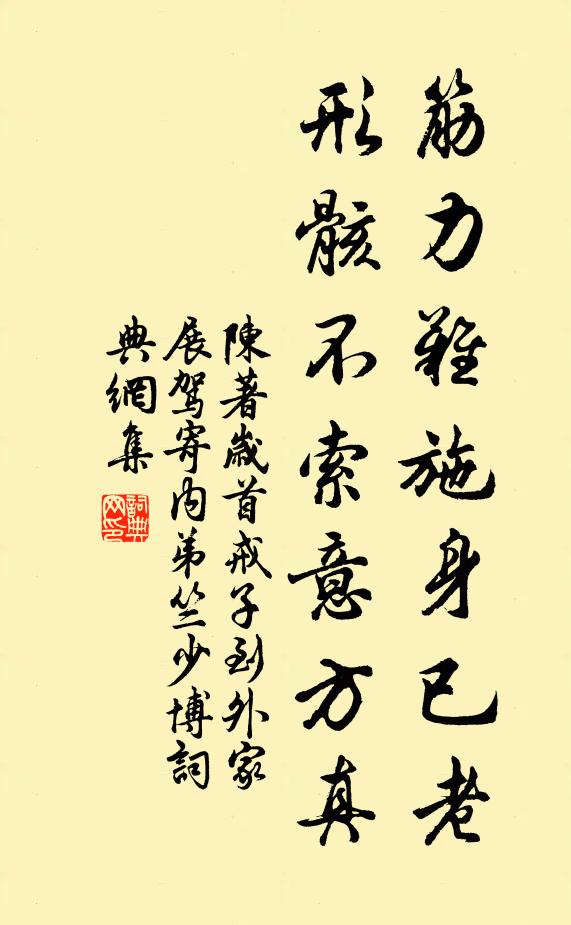 筋力難施身已老
形骸不索意方真
陳著歲首戒子到外家
展駕寄内弟竺少博詞
典網集
詞典
网印